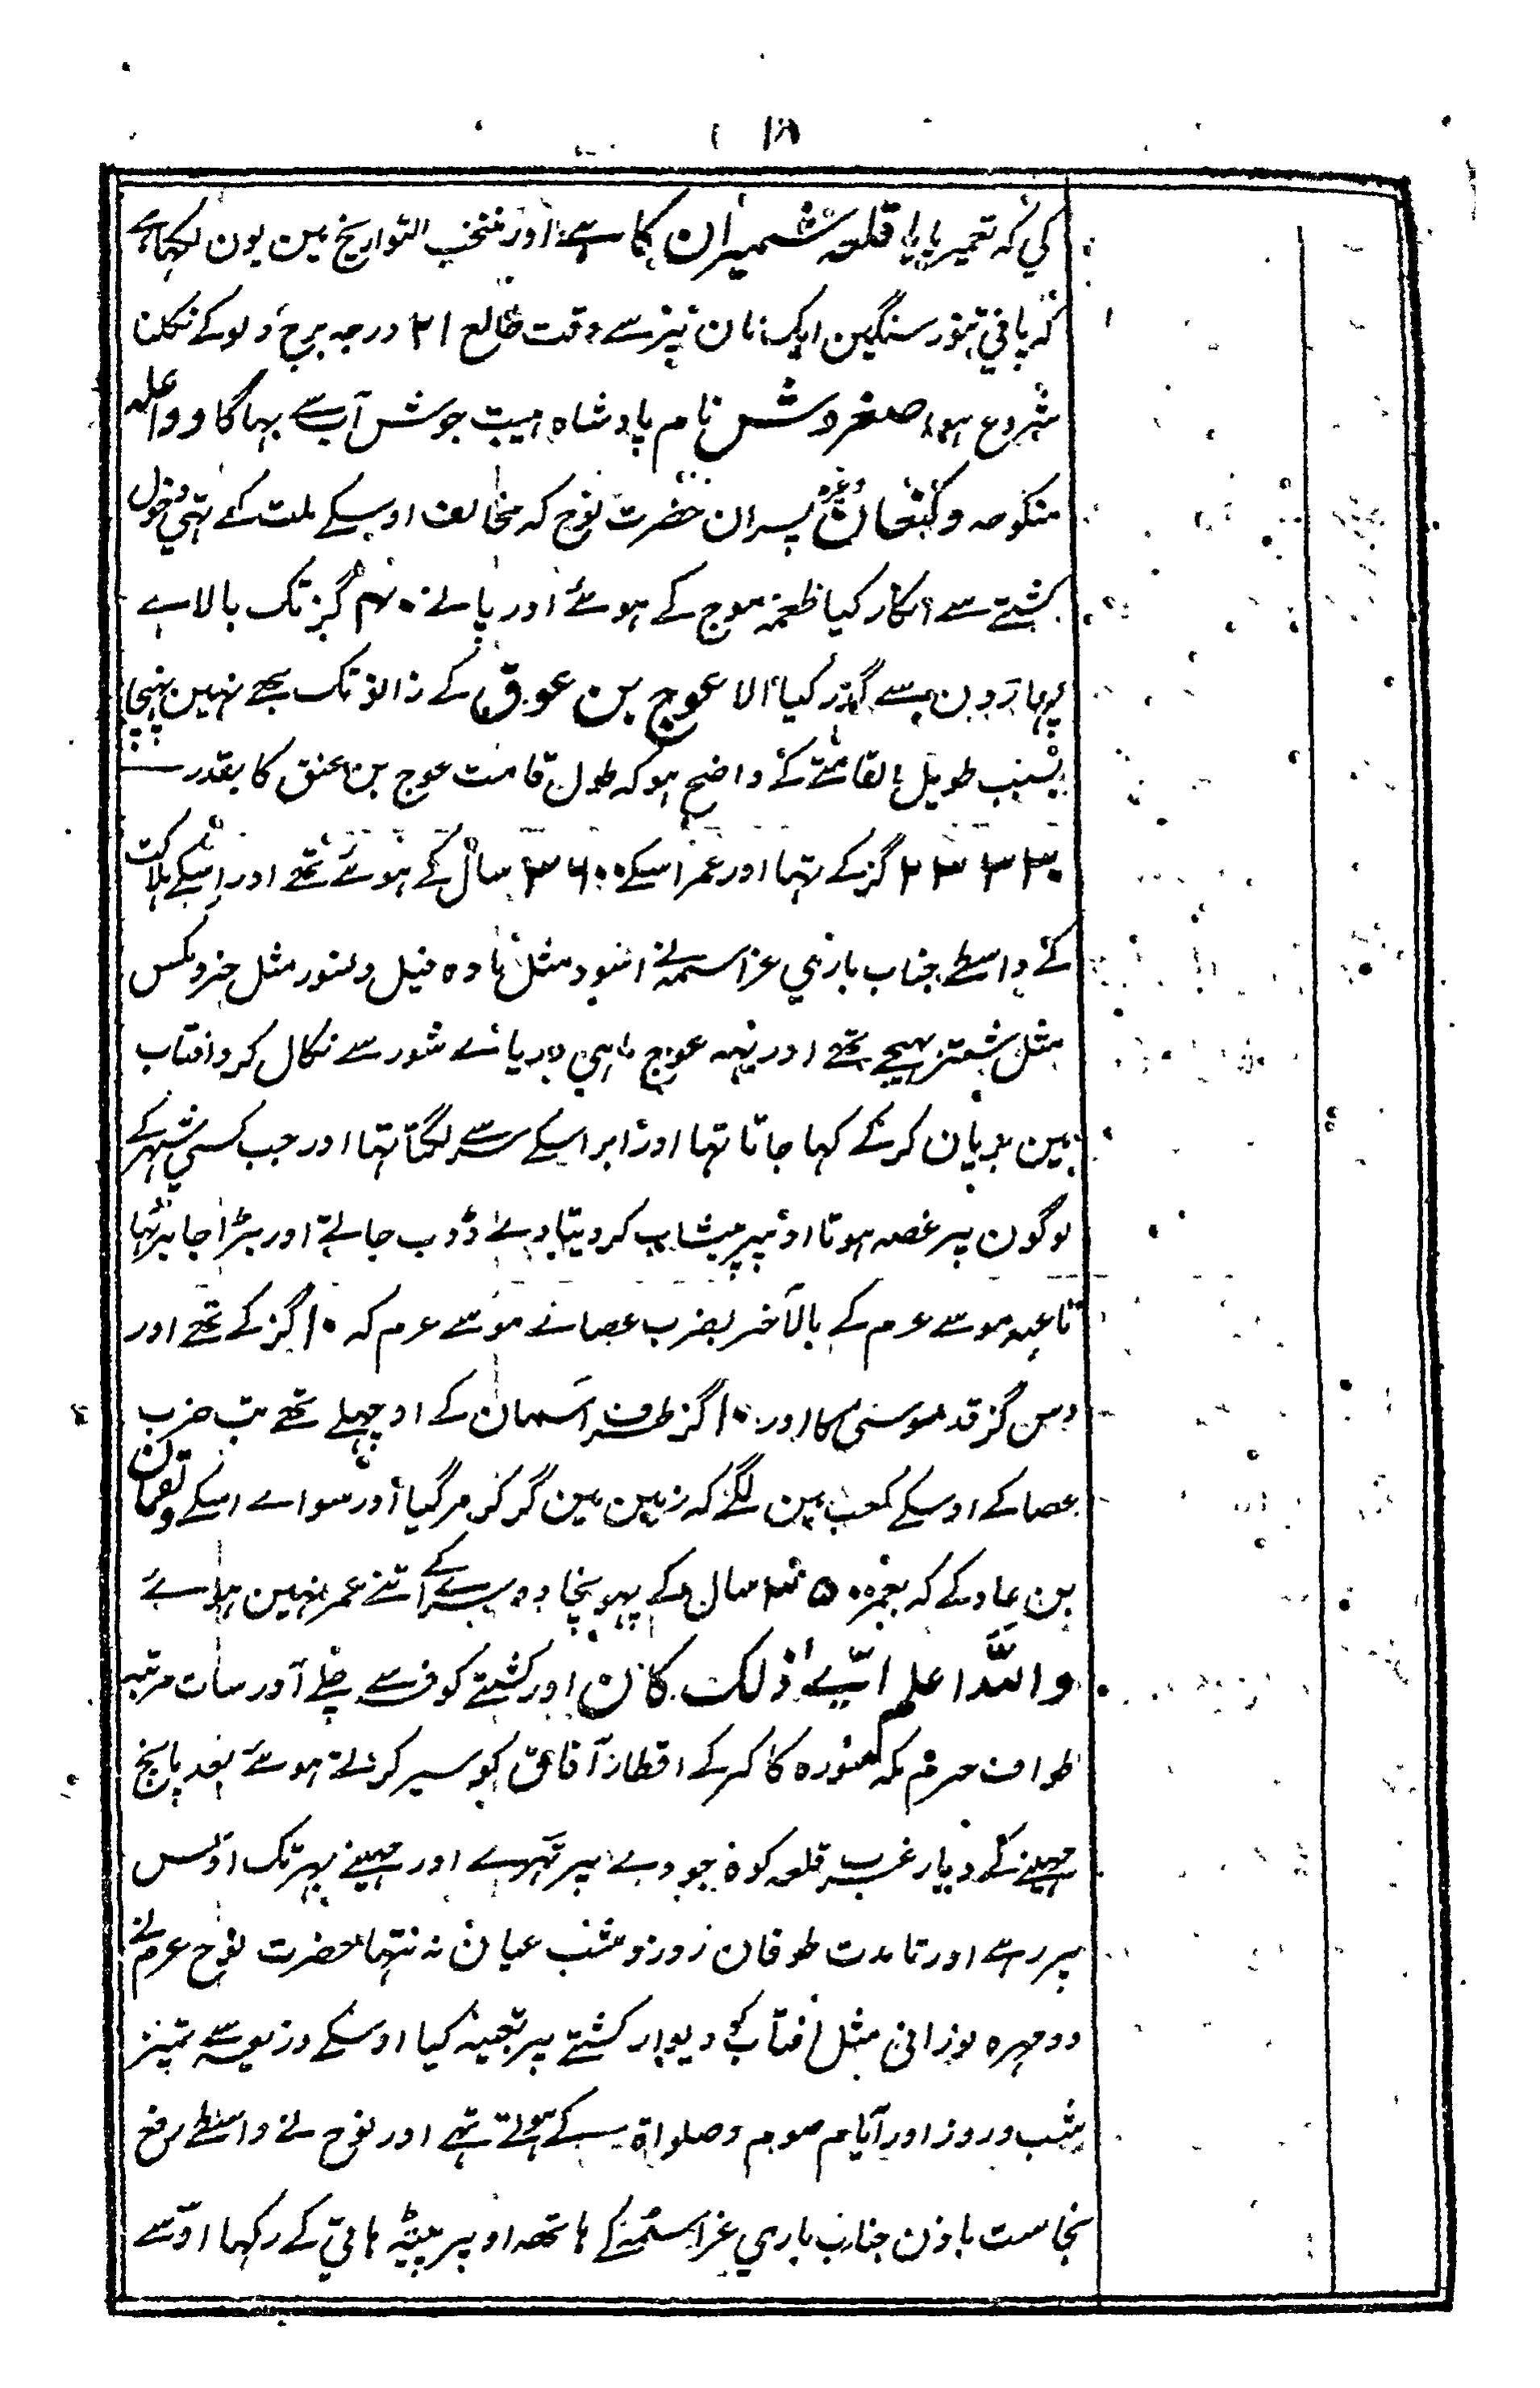 ۱۸
کي که تعمیر پایا قلعہ شمیران کا ہے اور منتخب التواریخ مین یون لکہا ہے
که پانی تنور سنگین ایک نان پز سے وقت طالع ۲۱ درجہ برج دلو کے نکلنا
شروع ہوا صغروش نام پادشاہ ہیبت جوش آب سے بہاگا و واعلہ
منکوحہ و کنعان وغیرہ پسران حضرت نوح که مخالف اوسکے ملت کے تہی دخول
کشتے سے انکار کیا طعمہ موج کے ہوئے اور پانے ۴۰ گز تک بالاے
پہاڑون سے گذر کیا الا عوج بن عوق کے زانو تک بھے نہین پہنچا
بسبب طویل القامتے کے واضح ہو که طول قامت عوج بن عنق کا بقدر
۲۳۳۳۰ گز کے تہا اور عمر اسکے ۳۶۰۰ سال کے ہوئے تھے اور اسکے ہلاکت
کے واسطے جناب باری عز اسمہ نے اسود مثل مادہ فیل و سنور مثل خر و مگس
مثل شتر بہیجے تھے اور یہہ عوج ماہی دریاے شور سے نکال کر و افتاب
مین بریان کر کے کہا جاتا تہا اور ابر اسکے سر سے لگتا تہا اور جب کسی شہر کے
لوگون پر غصہ ہوتا اونپر پیشاب کر دیتا وے ڈوب جاتے اور بڑا جابر تہا
تا عہد موسے عرم کے بالآخر بضرب عصاے موسے عرم که ۱۰ گز کے تھے اور
دس گز قد موسیٰ کا اور ۱۰ گز طرف آسمان کے اوچہلے تھے تب ضرب
عصا کے اوسکے کعب مین لگے که زمین مین گر کر مر گیا اور سواے اسکے و لقمان
بن عاد کے که بعمر ۳۵۰۰ سال کے پہونچا دوسرے کے اتنے عمر نہین ہوئے
واللہ اعلم ایّے ذلک کان اور کشتے کوفہ سے چلے اور سات مرتبہ
طواف حرم مکہ منورہ کا کر کے اقطار آفاق کو سیر کرتے ہوئے بعد پانچ
مہینے کے دیار غرب قلعہ کوہ جودے پر ٹہرے اور مہینے بہر تک اوس
پر رہے اور تا مدت طوفان روز و شب عیان نہ تہا حضرت نوح عرم نے
دو مہرہ نورانی مثل افتاب کو دیوار کشتے پر تعبیہ کیا اوسکے ذریعہ سے تمیز
شب و روز اور ایام صوم و صلواة سب کے ہوتے تہے اور نوح نے واسطے رفع
نجاست باذن جناب باری عز اسمہ کے ہاتھ اوپر پیٹہ ہاتی کے رکہا اوس سے